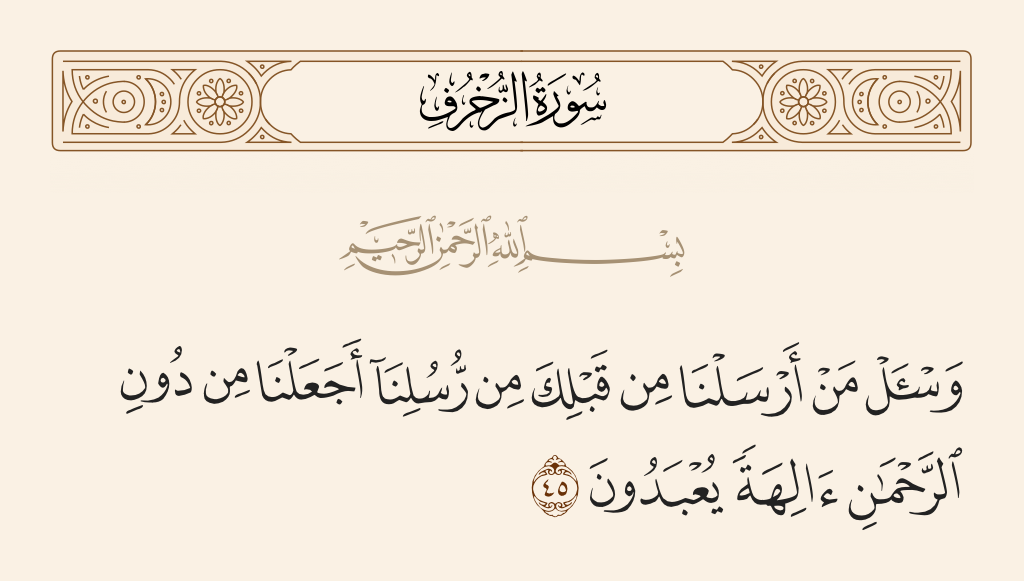 سُورَةُ الزُّخْرُفِ
بِسْمِ ٱللَّهِ ٱلرَّحْمَٰنِ ٱلرَّحِيمِ
وَسْـَٔلْ مَنْ أَرْسَلْنَا مِن قَبْلِكَ مِن رُّسُلِنَآ أَجَعَلْنَا مِن دُونِ
ٱلرَّحْمَـٰنِ ءَالِهَةً يُعْبَدُونَ ٤٥